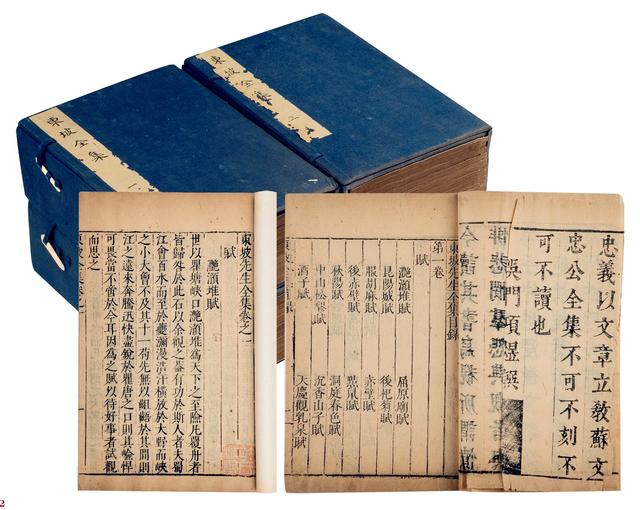 東坡全集
一
東坡全集
忠義以文章立教蘇文
忠公全集不可不刻不
可不讀也
吳門項煜撰
東坡先生全集目錄
第一卷
賦
灔澦堆賦 屈原廟賦
昆陽城賦 後杞菊賦
服胡麻賦 赤壁賦
後赤壁賦 黠鼠賦
秋陽賦 洞庭春色賦
中山松醪賦 沉香山子賦
酒子賦 天慶觀乳泉賦
東坡先生全集卷之一
賦
灔澦堆賦
世以瞿塘峽口灔澦堆為天下之至險凡覆舟者
皆歸咎於此石以余觀之蓋有功於斯人者夫蜀
江會百水而至於夔瀰漫浩汗橫放於大野而峽
之小大曾不及其十一苟先無以齟齬於其間則
江之遠來奔騰迅快盡銳於瞿唐之口則其嶮悍
可畏當不啻於今耳因為之賦以待好事者試觀
而思之
2